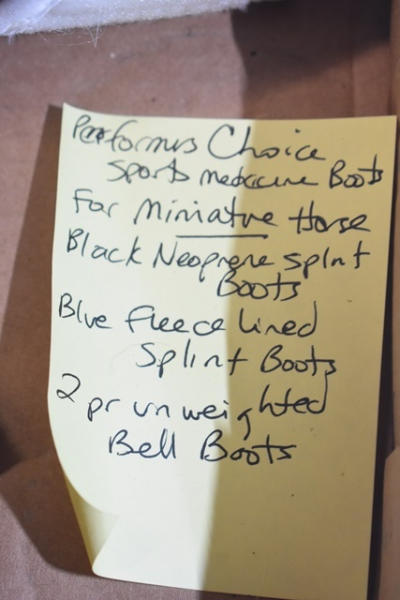 Performus Choice
Sports medicine Boots
For Miniature Horse
Black Neoprene splint
Boots
Blue fleece lined
Splint Boots
2 pr unweighted
Bell Boots